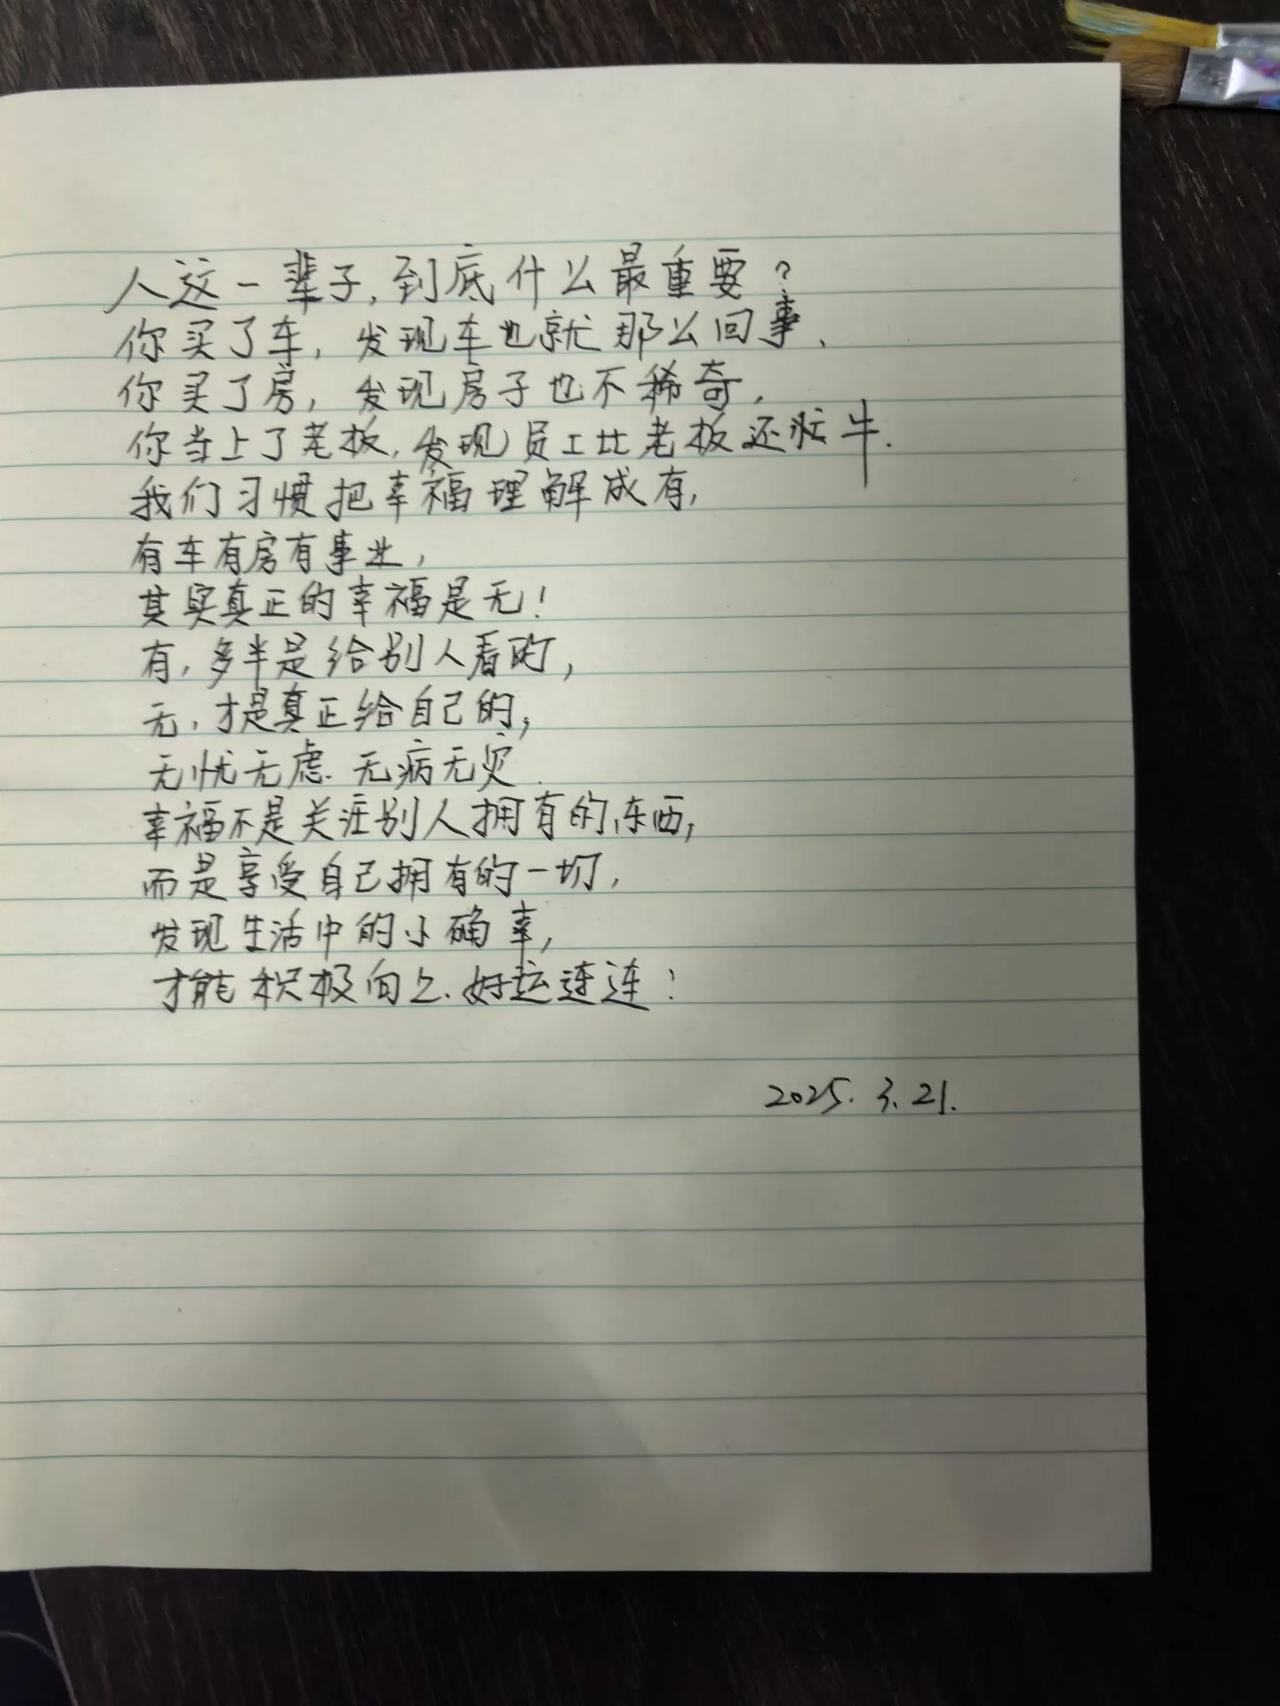 人这一辈子,到底什么最重要?
你买了车,发现车也就那么回事、
你买了房,发现房子也不稀奇,
你当上了老板,发现员工比老板还忙牛.
我们习惯把幸福理解成有,
有车有房有事业,
其实真正的幸福是无!
有,多半是给别人看的,
无,才是真正给自己的,
无忧无虑.无病无灾.
幸福不是关注别人拥有的东西,
而是享受自己拥有的一切,
发现生活中的小确幸,
才能积极向上.好运连连!
2025.3.21.